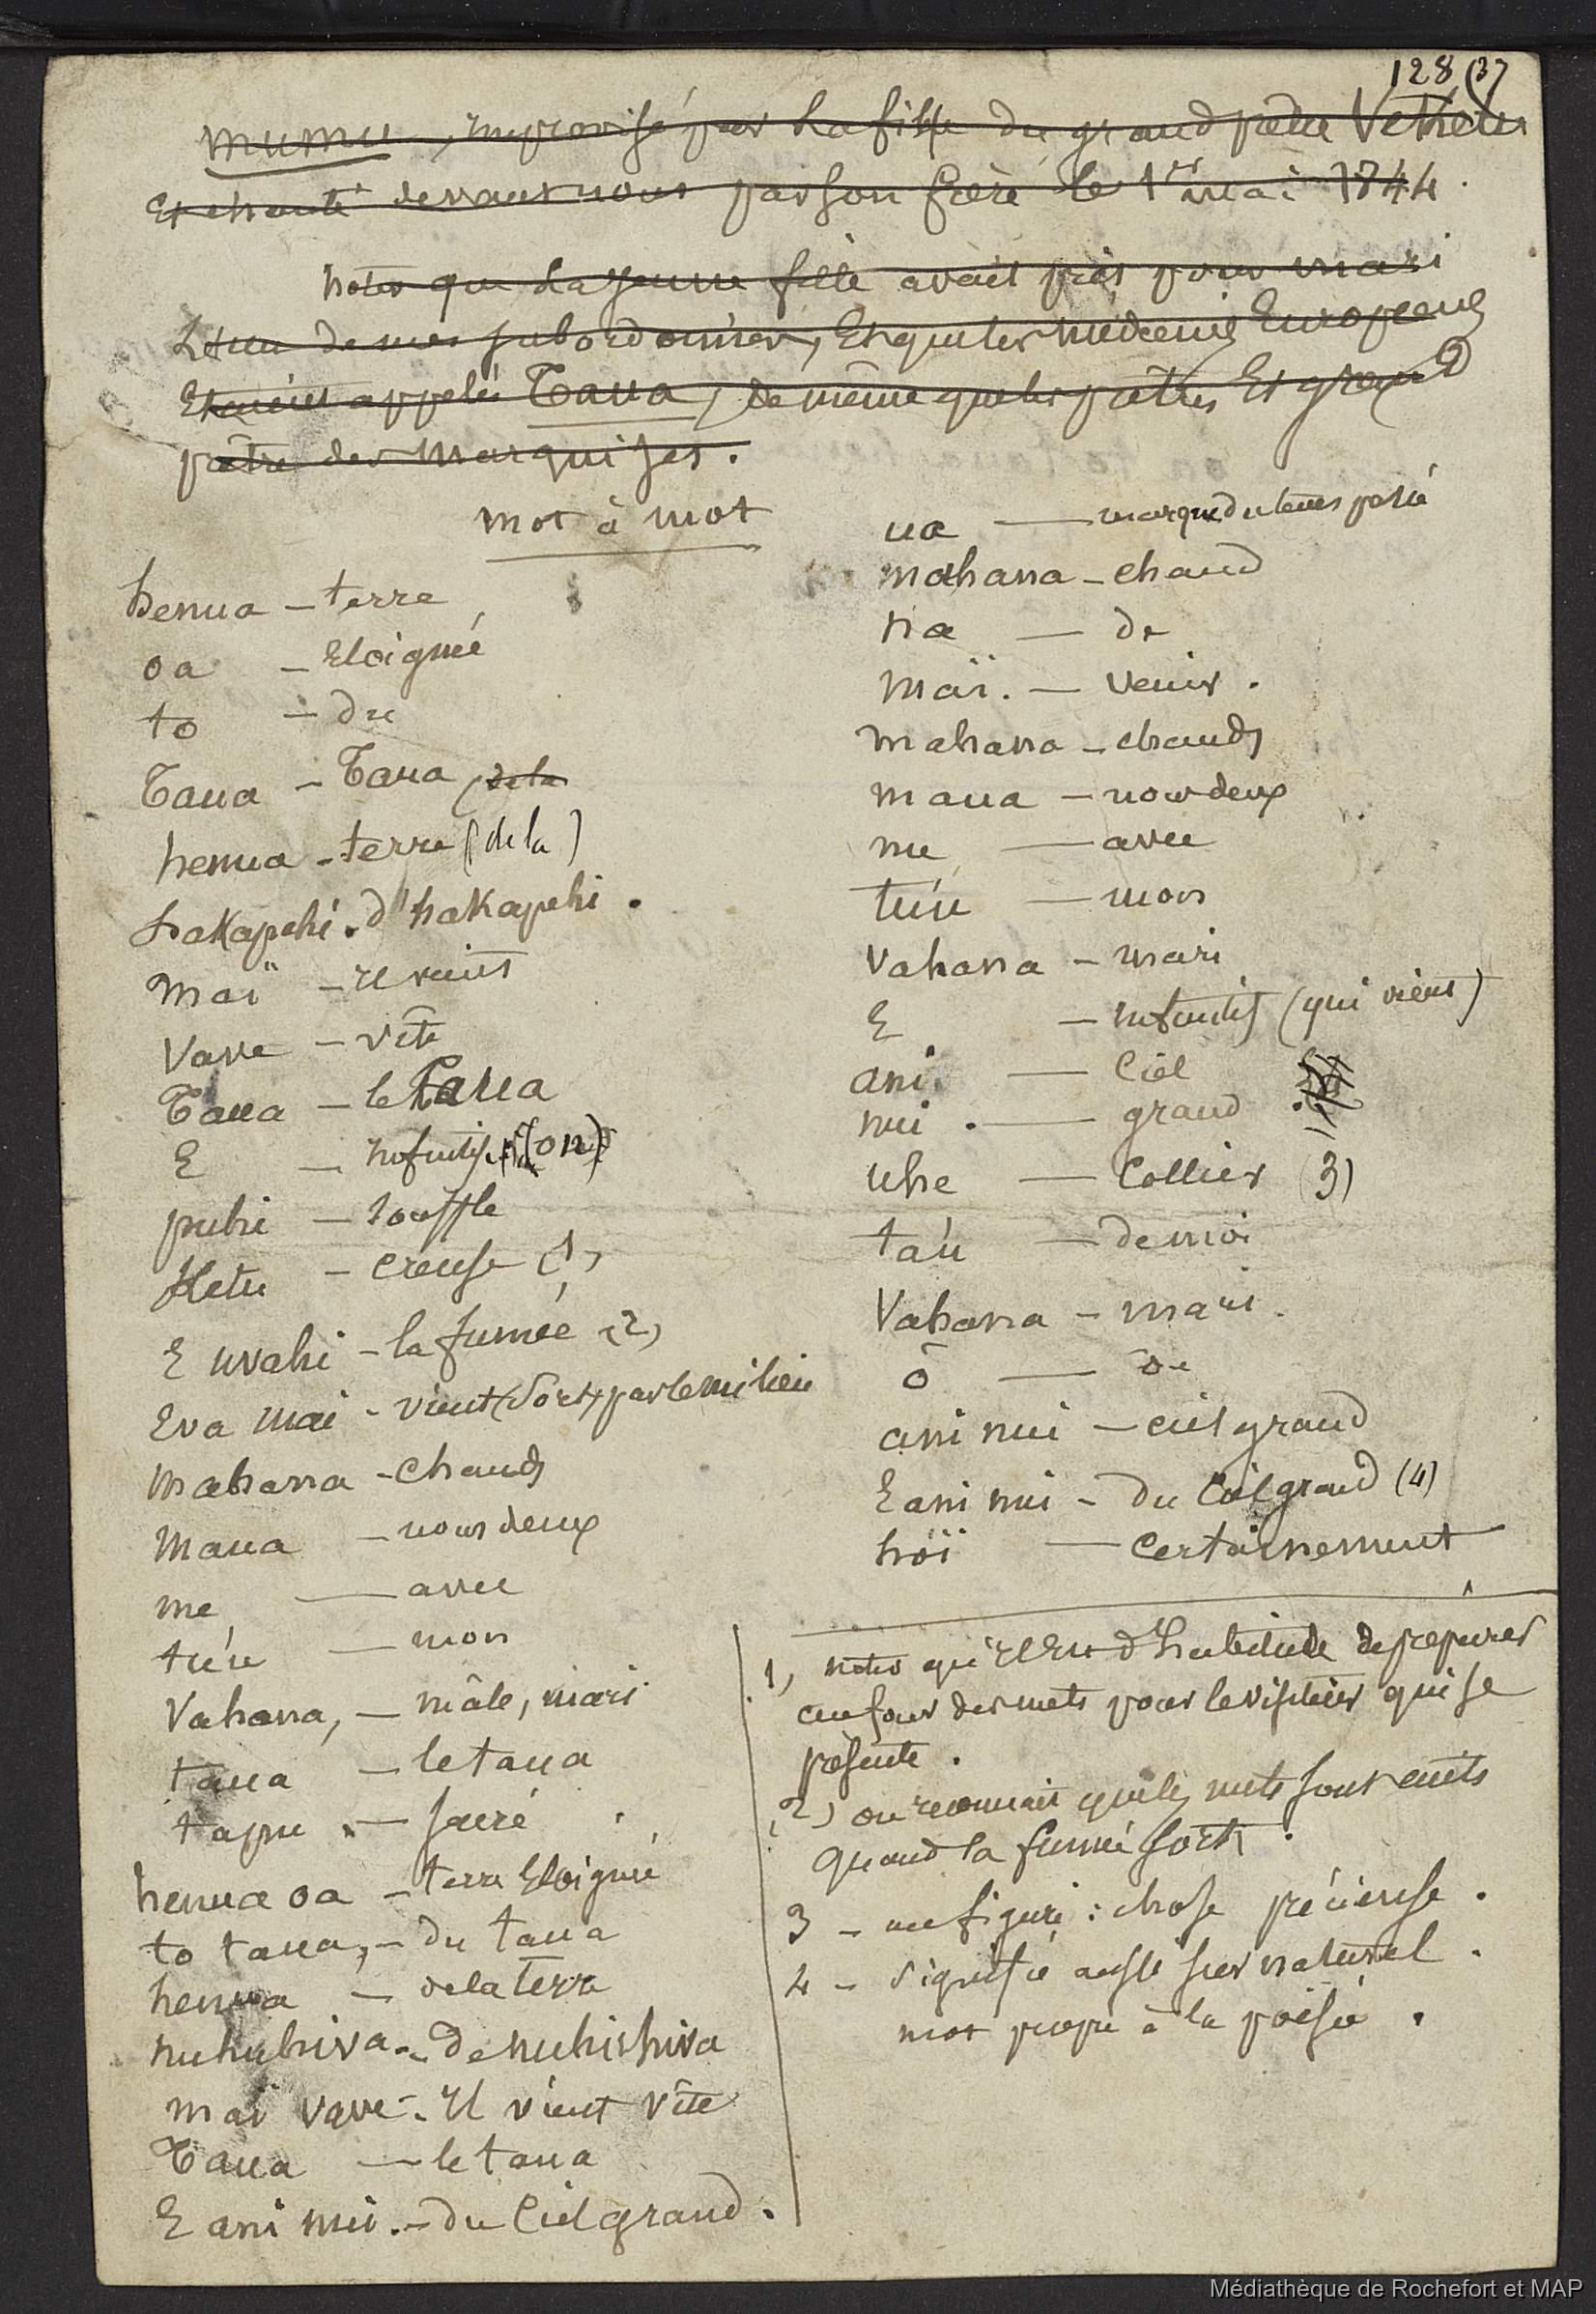 128 (37
mumu, improvisé par la fille du grand prêtre Vethétu
et chanté devant nous par son frère le 1er mai 1844.
noter que la jeune fille avait pris pour mari
l'un de mes subordonnés, et que les médecins Européens
étaient appelés Taua, de même que les prêtres et grand
prêtre des Marquises.
mot à mot
henua - terre
oa - Eloignée
to - du
Taua - Taua (de la
henua - terre (de la)
hakapehi. d'hakapehi.
maï - il vient
Vave - vîte
Taua - le Taua
E - infinitif (on)
puhi - souffle
Hetu - creuse (1)
E uvahi - la fumée (2)
Eva mai - vient (sort) par le milieu
mahana - chauds
Maua - nous deux
me - avec
tu'u - mon
Vahana, - mâle, mari
taua - le taua
tapu - sacré
henua oa - terre Eloignée
to taua, - du taua
henua - de la terre
nuhuhiva - de nuhihiva
mai vave - Il vient vîte
Taua - le taua
E ani nui. - du Ciel grand.
ua - marque du temps passé
mahana - chaud
na - de
maï. - venir.
mahana - chauds
maua - nous deux
me - avec
tu'u - mon
Vahana - mari
E - infinitif (qui vient)
ani. - Ciel
nui. - grand
uhe - Collier (3)
ta'u - de moi
Vahana - mari.
ō - de
ani nui - ciel grand
E ani nui - du Ciel grand (4)
hoï - Certainement
1) noter qu'il est d'habitude de préparer
au four des mets pour le visiteur qui se
présente.
(2) on reconnait que les mets sont cuits
quand la fumée sort.
3 - au figuré : chose précieuse.
4 - signifie aussi surnaturel.
mot propre à la poësie.
Médiathèque de Rochefort et MAP